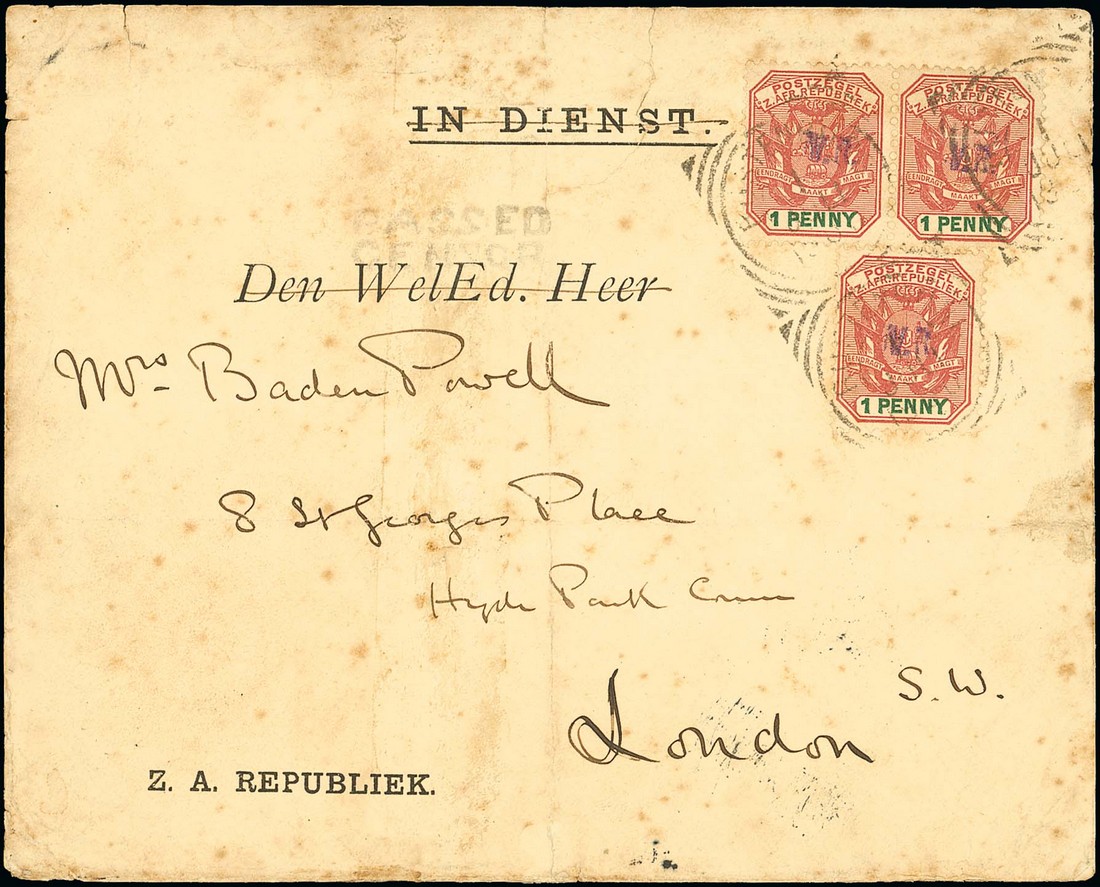 IN DIENST.
POSTZEGEL
Z. AFR. REPUBLIEK
V.R.
EENDRAGT MAAKT MAGT
1 PENNY
POSTZEGEL
Z. AFR. REPUBLIEK
V.R.
EENDRAGT MAAKT MAGT
1 PENNY
PASSED
CENSOR
POSTZEGEL
Z. AFR. REPUBLIEK
V.R.
EENDRAGT MAAKT MAGT
1 PENNY
Den WelEd. Heer
Mrs Baden Powell
8 St Georges Place
Hyde Park Corner
London
S.W.
Z. A. REPUBLIEK.